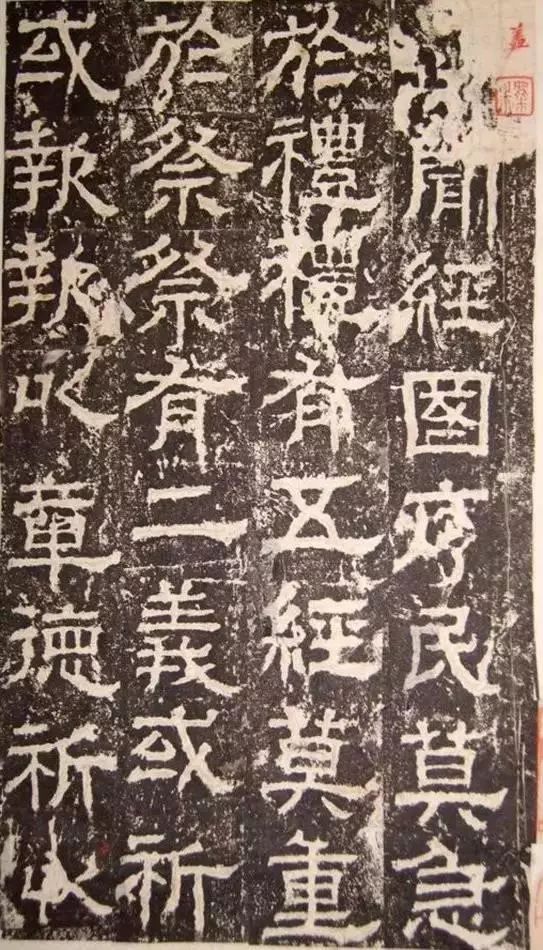 盖
聞經國序民莫急
於禮禮有五經莫重
於祭祭有二義或祈
或報報以章德祈以